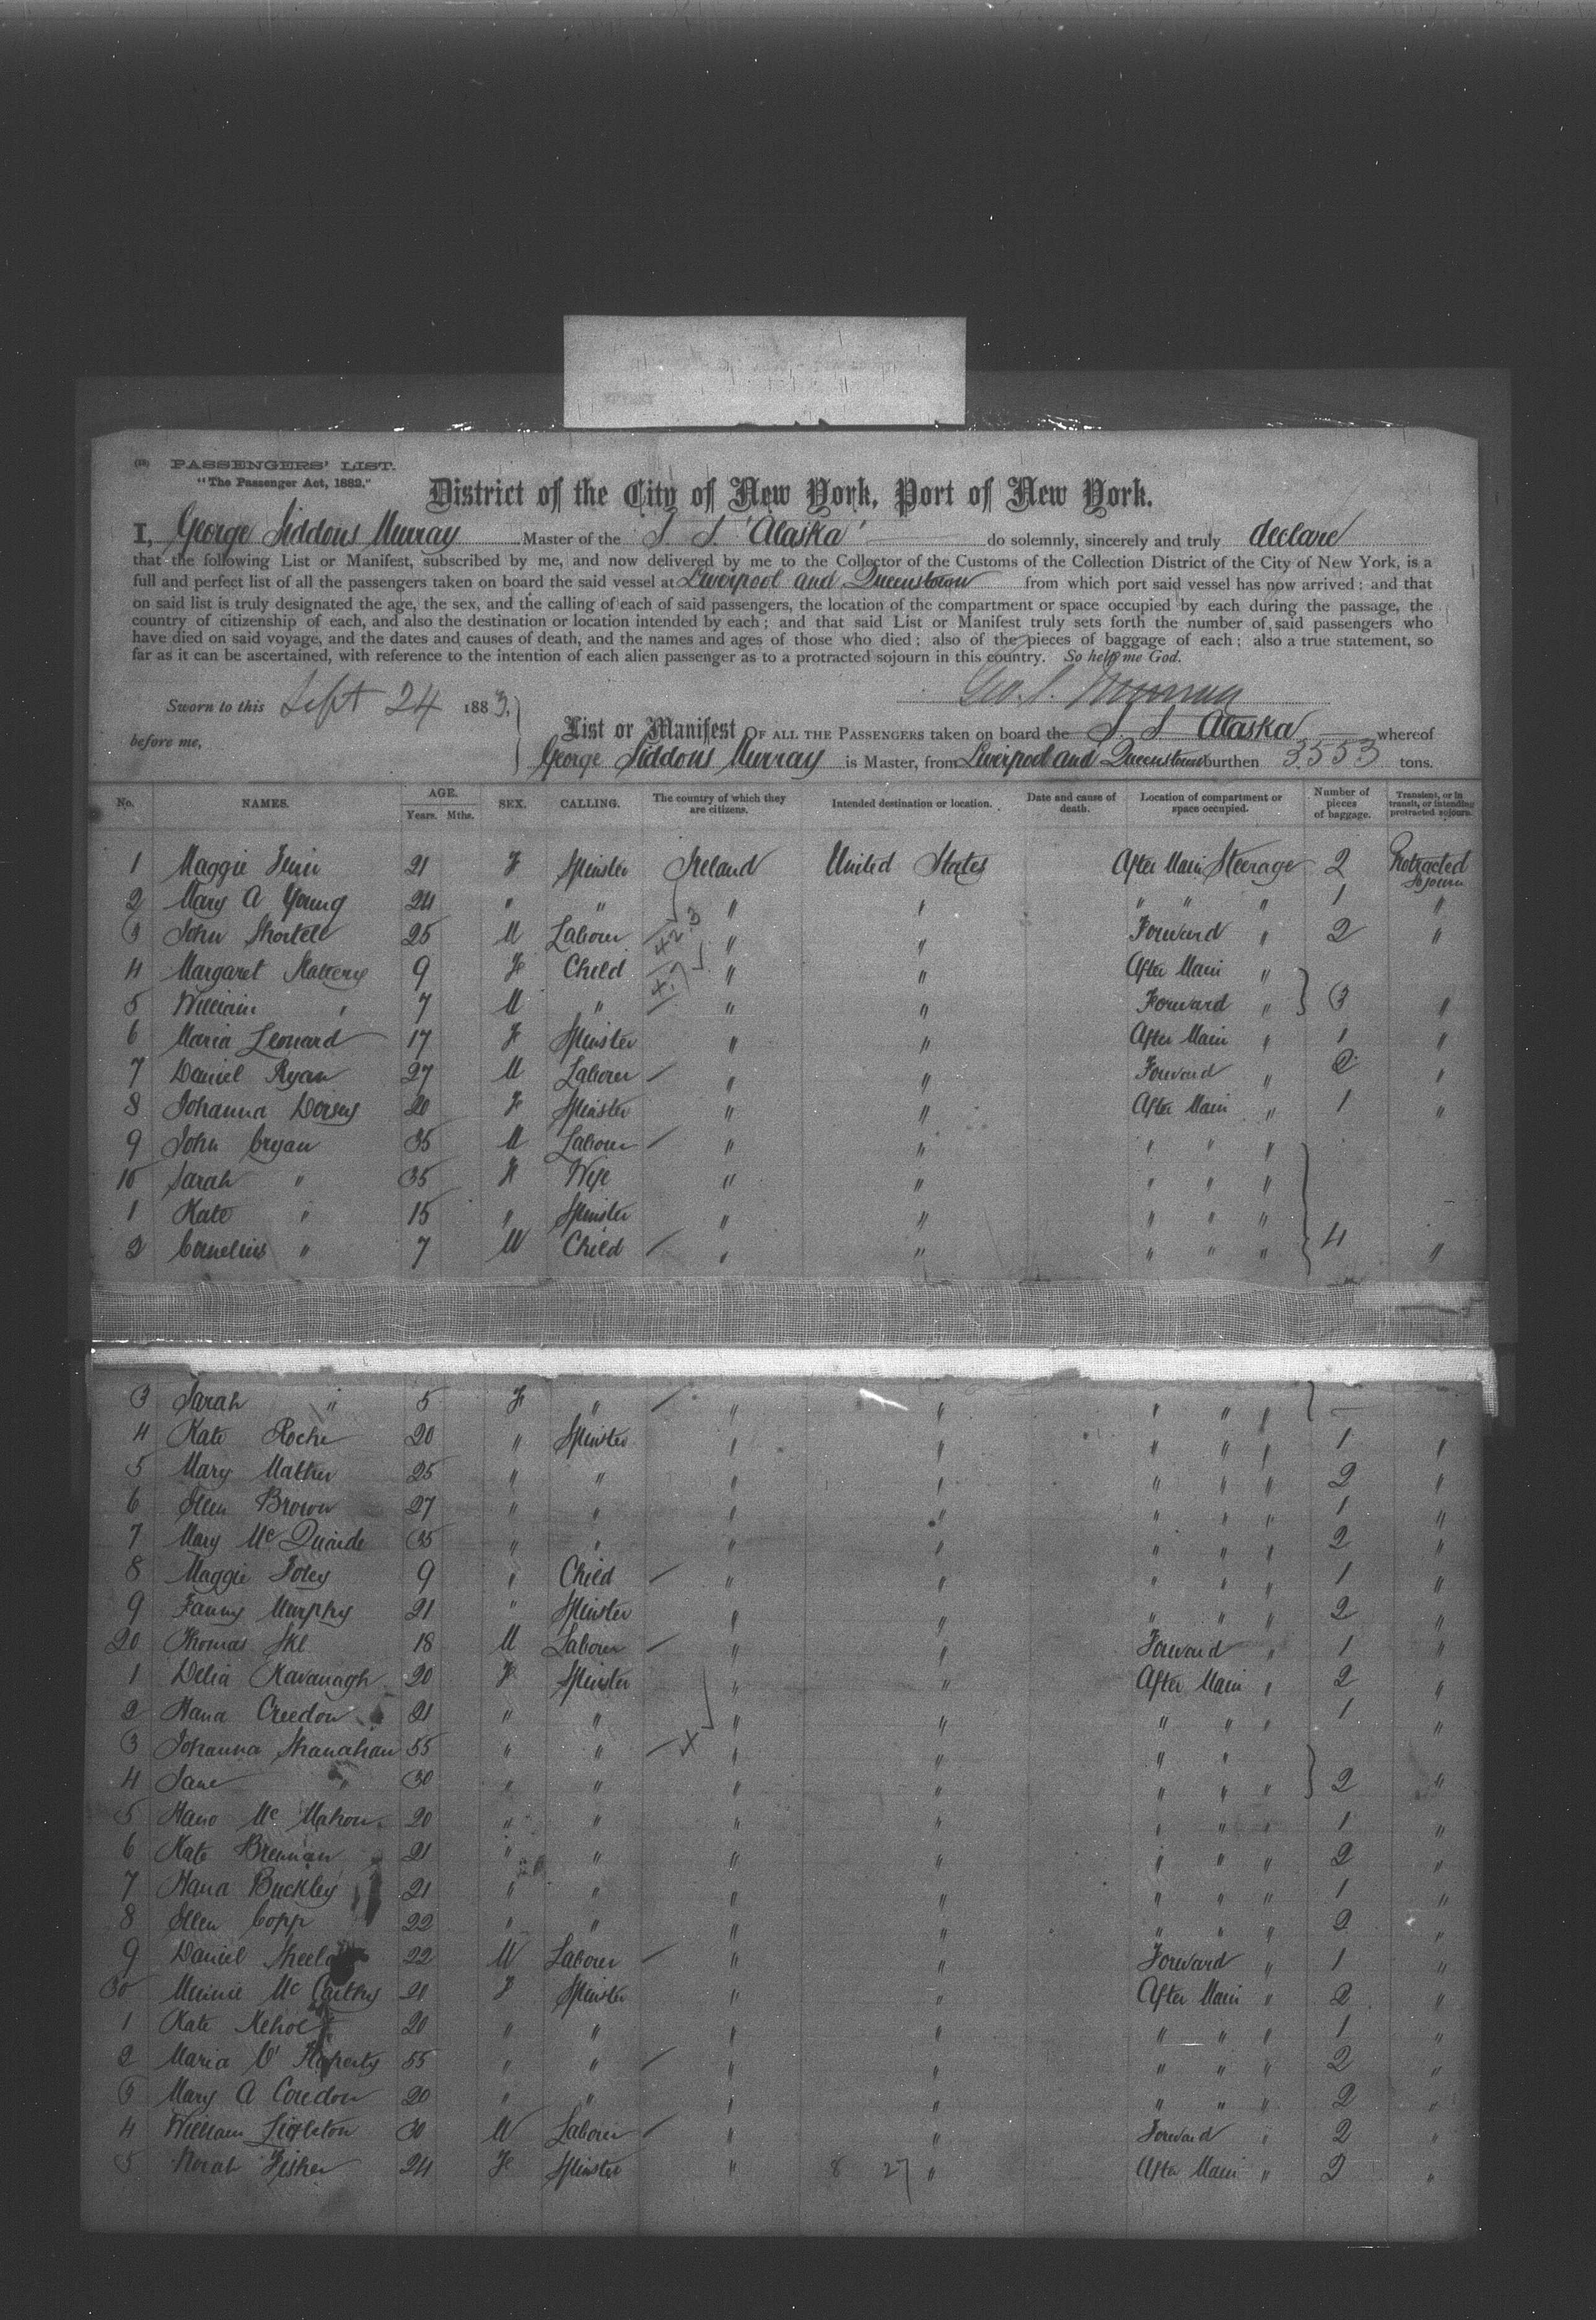 (18) PASSENGERS' LIST.
"The Passenger Act, 1882."
District of the City of New York, Port of New York.
I, George Siddons Murray Master of the S. S. "Alaska" do solemnly, sincerely and truly declare
that the following List or Manifest, subscribed by me, and now delivered by me to the Collector of the Customs of the Collection District of the City of New York, is a
full and perfect list of all the passengers taken on board the said vessel at Liverpool and Queenstown from which port said vessel has now arrived; and that
on said list is truly designated the age, the sex, and the calling of each of said passengers, the location of the compartment or space occupied by each during the passage, the
country of citizenship of each, and also the destination or location intended by each; and that said List or Manifest truly sets forth the number of said passengers who
have died on said voyage, and the dates and causes of death, and the names and ages of those who died; also of the pieces of baggage of each; also a true statement, so
far as it can be ascertained, with reference to the intention of each alien passenger as to a protracted sojourn in this country. So help me God.
Geo. S. Murray
Sworn to this Sept 24 1883,
before me,
List or Manifest OF ALL THE PASSENGERS taken on board the S S Alaska whereof
George Siddons Murray is Master, from Liverpool and Queenstown burthen 3553 tons.
No. NAMES. AGE. Years. Mths. SEX. CALLING. The country of which they are citizens. Intended destination or location. Date and cause of death. Location of compartment or space occupied. Number of pieces of baggage. Transient, or in transit, or intending protracted sojourn.
1 Maggie 21 F Spinster Ireland United States After Main Steerage 2 Protracted Sojourn
2 Mary A Young 24 " " " " " " " 1 "
3 John Shortell 25 M Labourer " " Forward " 2 "
4 Margaret Slattery 9 F Child " " After Main "
5 William " 7 M " " " Forward " } 3 "
6 Maria Leonard 17 F Spinster " " After Main " 1 "
7 Daniel Ryan 27 M Labourer " " Forward " 2 "
8 Johanna Dorsey 20 F Spinster " " After Main " 1 "
9 John Cryan 35 M Labourer " " " " "
10 Sarah " 35 F Wife " " " " "
1 Kate " 15 " Spinster " " " " "
2 Cornelius " 7 M Child " " " " " 4 "
3 Sarah " 5 F " " " " " "
4 Kate Roche 20 " Spinster " " " " " 1 "
5 Mary Mather 25 " " " " " " " 2 "
6 Ellen Brown 27 " " " " " " " 1 "
7 Mary McQuaide 35 " " " " " " " 2 "
8 Maggie Foley 9 " Child " " " " " 1 "
9 Fanny Murphy 21 " Spinster " " " " " 2 "
20 Thomas 18 M Labourer " " Forward " 1 "
1 Delia Kavanagh 20 F Spinster " " After Main " 2 "
2 Hana Creedon 21 " " " " " " " 1 "
3 Johanna Shanahan 55 " " " " " "
4 Jane " 30 " " " " " " " } 2 "
5 Hano McMahon 20 " " " " " " " 1 "
6 Kate Brennan 21 " " " " " " " 2 "
7 Hana Buckley 21 " " " " " " " 1 "
8 Ellen Copp 22 " " " " " " " 2 "
9 Daniel 22 M Labourer " " Forward " 1 "
30 Minnie McCarthy 20 F Spinster " " After Main " 2 "
1 Kate Kehoe 20 " " " " " " " 1 "
2 Maria O'Flaherty 55 " " " " " " " 2 "
3 Mary A Condon 20 " " " " " " " 2 "
4 William Singleton 30 M Labourer " " Forward " 2 "
5 Norah Fisher 24 F Spinster " 8 27 " After Main " 2 "